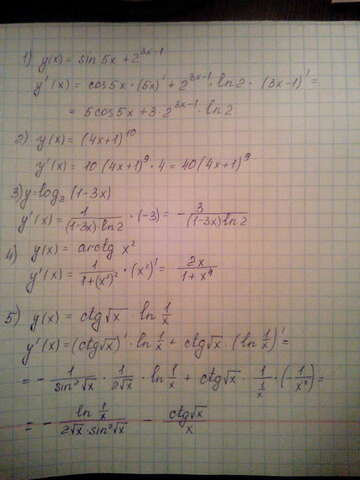 1) y(x) = sin 5x + 2^{3x-1}
y'(x) = cos5x · (5x)' + 2^{3x-1} · ln2 · (3x-1)' =
= 5cos5x + 3 · 2^{3x-1} · ln2
2) y(x) = (4x+1)^{10}
y'(x) = 10(4x+1)^9 · 4 = 40(4x+1)^9
3) y = log_2 (1-3x)
y'(x) = \frac{1}{(1-3x)ln2} · (-3) = -\frac{3}{(1-3x)ln2}
4) y(x) = arctg x^2
y'(x) = \frac{1}{1+(x^2)^2} · (x^2)' = \frac{2x}{1+x^4}
5) y(x) = ctg√x · ln\frac{1}{x}
y'(x) = (ctg√x)' · ln\frac{1}{x} + ctg√x · (ln\frac{1}{x})' =
= -\frac{1}{sin^2√x} · \frac{1}{2√x} · ln\frac{1}{x} + ctg√x · \frac{1}{\frac{1}{x}} · (-\frac{1}{x^2}) =
= -\frac{ln\frac{1}{x}}{2√x · sin^2√x} - \frac{ctg√x}{x}